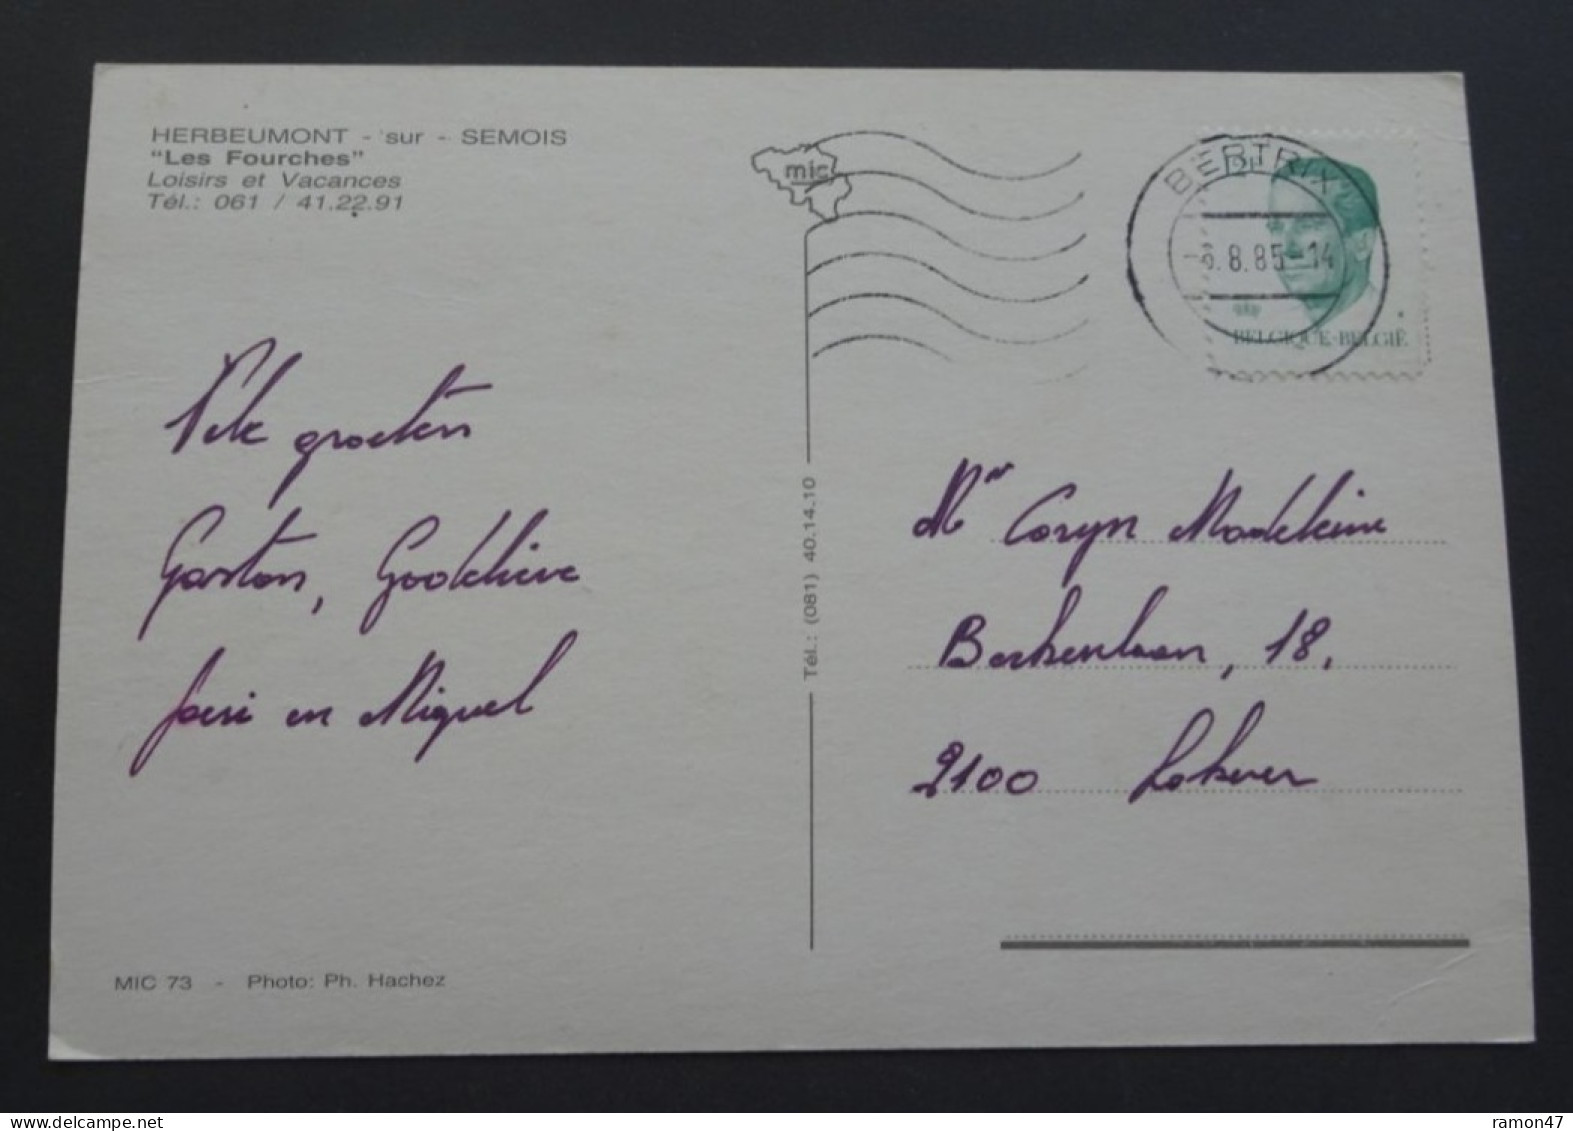 HERBEUMONT - sur - SEMOIS
"Les Fourches"
Loisirs et Vacances
Tél.: 061 / 41.22.91
mic
BERTRIX
8.85-14
BELGIQUE·BELGIË
Vele groeten
Gaston, Godelieve
en Miguel
Tél.: (081) 40.14.10
Mr Coryn Madeleine
18.
9100 Lokeren
MIC 73 - Photo: Ph. Hachez
ramon47